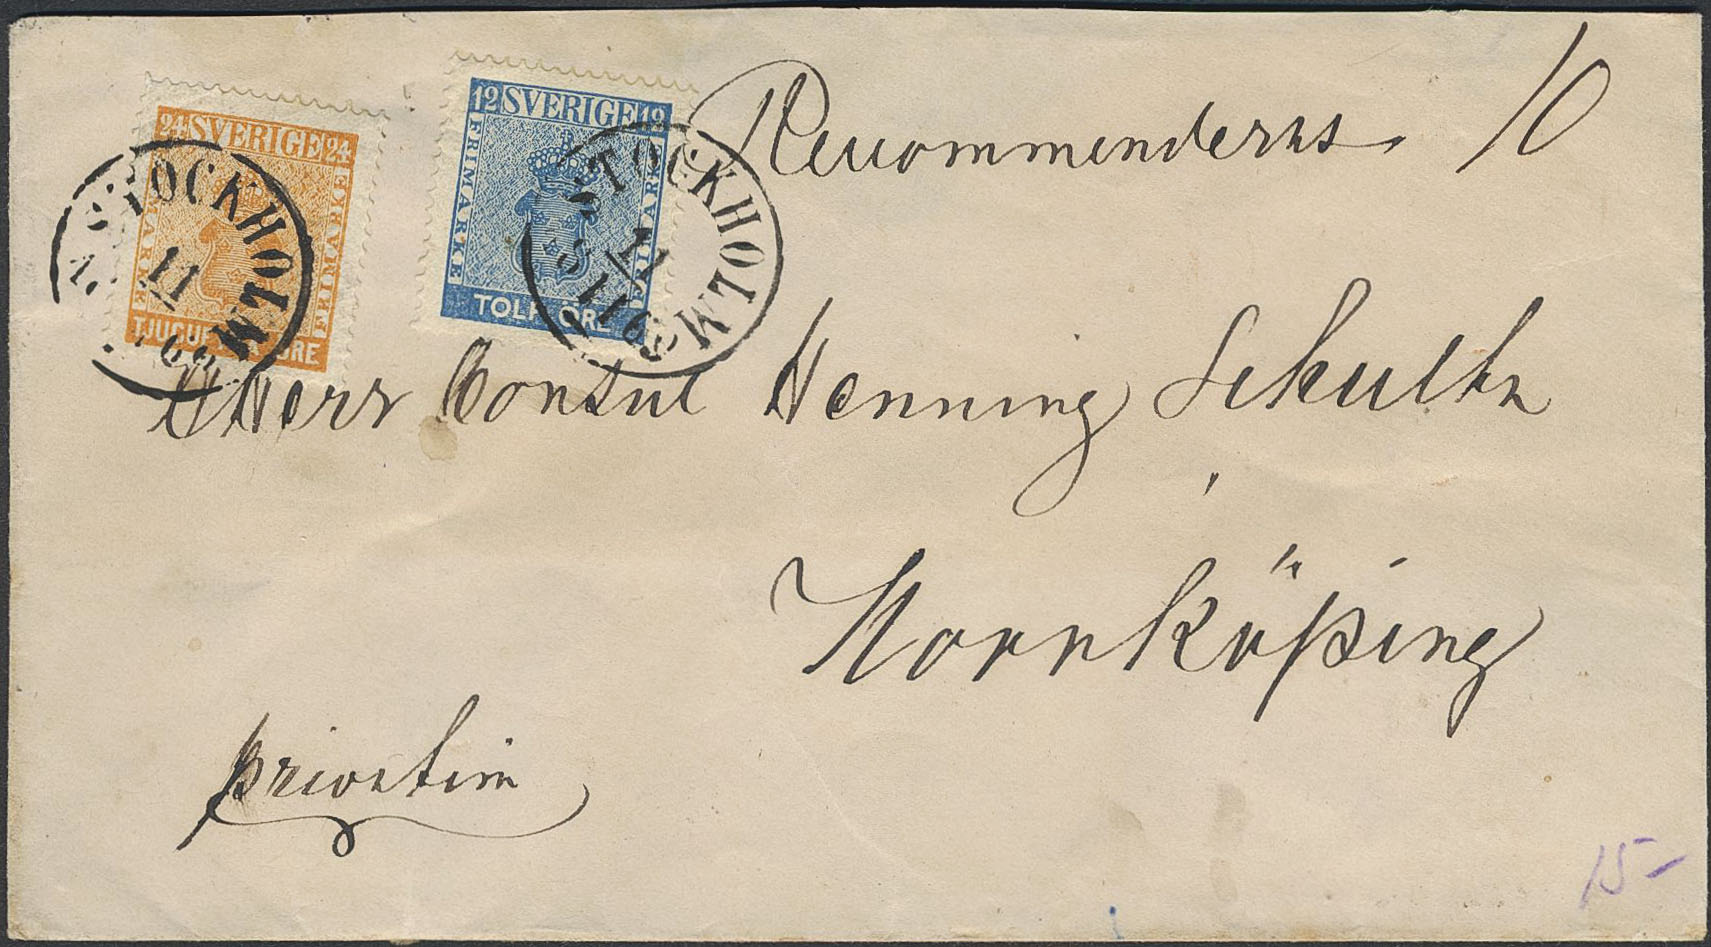 Recommenderas. 10
24 SVERIGE 24
FRIMÄRKE FRIMÄRKE
TJUGUFYRA ÖRE
STOCKHOLM
11
12 SVERIGE 12
FRIMÄRKE FRIMÄRKE
TOLF ÖRE
STOCKHOLM
11
11
Herr Consul Henning Schultz
Norrköping
privatim
15-